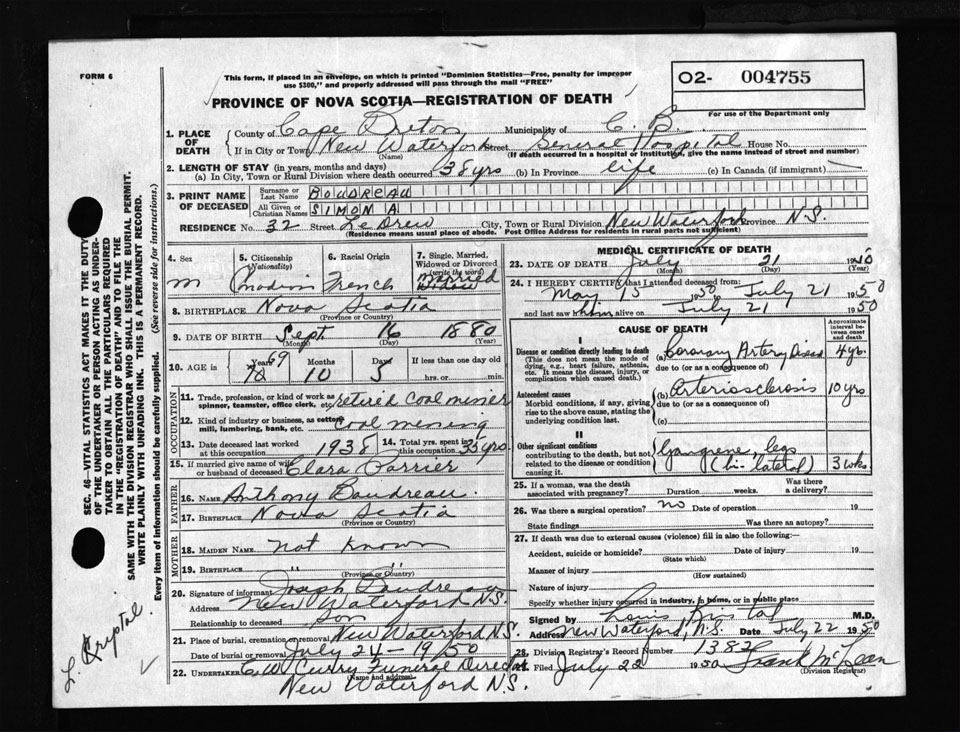 FORM 6
This form, if placed in an envelope, on which is printed "Dominion Statistics—Free, penalty for improper
use $300," and properly addressed will pass through the mail "FREE"
O2- 004755
For use of the Department only
PROVINCE OF NOVA SCOTIA—REGISTRATION OF DEATH
1. PLACE OF DEATH County of Cape Breton Municipality of C. B.
If in City or Town New Waterford (Name) Street General Hospital House No.
(If death occurred in a hospital or institution, give the name instead of street and number)
2. LENGTH OF STAY (in years, months and days)
(a) In City, Town or Rural Division where death occurred 38 yrs (b) In Province life (c) In Canada (if immigrant) —
3. PRINT NAME OF DECEASED Surname or Last Name BOUDREAU
All Given or Christian Names SIMON A.
RESIDENCE No. 32 Street Le Drew City, Town or Rural Division New Waterford Province N.S.
(Residence means usual place of abode. Post Office Address for residents in rural parts not sufficient)
4. Sex 5. Citizenship (Nationality) 6. Racial Origin 7. Single, Married, Widowed or Divorced (write the word)
m Canadian French Married Widow
8. BIRTHPLACE Nova Scotia
(Province or Country)
9. DATE OF BIRTH Sept 16 1880
(Month) (Day) (Year)
10. AGE is in Years 70 69 Months 10 Days 5 If less than one day old hrs. or min.
OCCUPATION
11. Trade, profession, or kind of work as spinner, teamster, office clerk, etc. retired coal miner
12. Kind of industry or business, as cotton mill, lumbering, bank, etc. Coal mining
13. Date deceased last worked at this occupation 1938 14. Total yrs. spent in this occupation 35 yrs.
15. If married give name of wife or husband of deceased Clara Porrier
FATHER
16. NAME Anthony Boudreau
17. BIRTHPLACE Nova Scotia
(Province or Country)
MOTHER
18. MAIDEN NAME Not Known
19. BIRTHPLACE " "
(Province or Country)
20. Signature of informant Joseph Boudreau
Address New Waterford N.S.
Relationship to deceased Son
21. Place of burial, cremation or removal New Waterford N.S.
Date of burial or removal July 24 - 19/50
22. UNDERTAKER C.W. Curry Funeral Director
(Name and address)
New Waterford N.S.
MEDICAL CERTIFICATE OF DEATH
23. DATE OF DEATH July 21 1950
(Month) (Day) (Year)
24. I HEREBY CERTIFY that I attended deceased from:
May 15 1950 to July 21 1950
and last saw him alive on July 21 1950
CAUSE OF DEATH
Approximate interval between onset and death
I
Disease or condition directly leading to death (This does not mean the mode of dying, e.g., heart failure, asthenia, etc. It means the disease, injury, or complication which caused death.)
(a) Coronary Artery Disease 4 yrs.
due to (or as a consequence of)
Antecedent causes
Morbid conditions, if any, giving rise to the above cause, stating the underlying condition last.
(b) Arteriosclerosis 10 yrs
due to (or as a consequence of)
(c)
II
Other significant conditions contributing to the death, but not related to the disease or condition causing it.
Gangrene, legs
(bi-lateral) 3 wks.
25. If a woman, was the death associated with pregnancy? Duration weeks. Was there a delivery?
26. Was there a surgical operation? no Date of operation 19
State findings Was there an autopsy?
27. If death was due to external causes (violence) fill in also the following:—
Accident, suicide or homicide? Date of injury 19
(State which)
Manner of injury
(How sustained)
Nature of injury
Specify whether injury occurred in industry, in home, or in public place
Signed by Louis Kristal M.D.
Address New Waterford, N.S. Date July 22 1950
28. Division Registrar's Record Number 1382
Filed July 22 1950 Frank McLean
(Division Registrar)
SEC. 46—VITAL STATISTICS ACT MAKES IT THE DUTY
OF THE UNDERTAKER OR PERSON ACTING AS UNDER-
TAKER TO OBTAIN ALL THE PARTICULARS REQUIRED
IN THE "REGISTRATION OF DEATH" AND TO FILE THE
SAME WITH THE DIVISION REGISTRAR WHO SHALL ISSUE THE BURIAL PERMIT.
WRITE PLAINLY WITH UNFADING INK. THIS IS A PERMANENT RECORD.
Every item of information should be carefully supplied. (See reverse side for instructions.)
L. Kryptal.